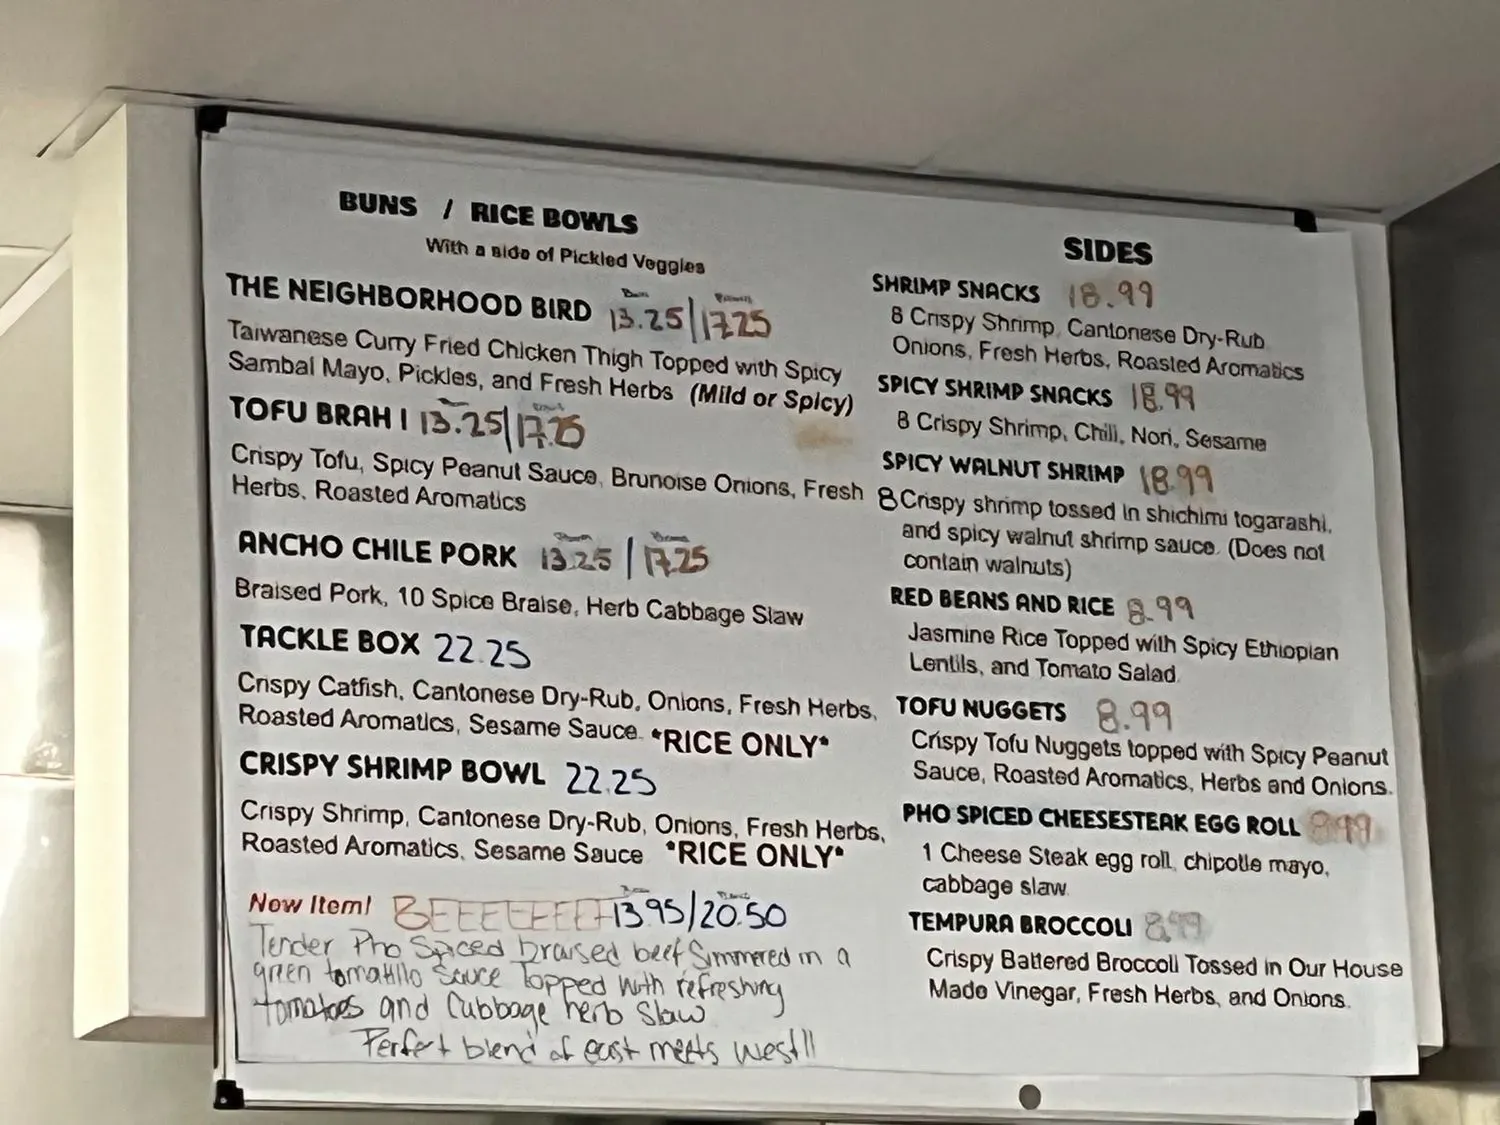 BUNS / RICE BOWLS
With a side of Pickled Veggies
THE NEIGHBORHOOD BIRD 13.25/17.25
Taiwanese Curry Fried Chicken Thigh Topped with Spicy
Sambal Mayo, Pickles, and Fresh Herbs (Mild or Spicy)
TOFU BRAH ! 13.25/17.25
Crispy Tofu, Spicy Peanut Sauce, Brunoise Onions, Fresh
Herbs, Roasted Aromatics
ANCHO CHILE PORK 13.25 / 17.25
Braised Pork, 10 Spice Braise, Herb Cabbage Slaw
TACKLE BOX 22.25
Crispy Catfish, Cantonese Dry-Rub, Onions, Fresh Herbs,
Roasted Aromatics, Sesame Sauce. *RICE ONLY*
CRISPY SHRIMP BOWL 22.25
Crispy Shrimp, Cantonese Dry-Rub, Onions, Fresh Herbs,
Roasted Aromatics, Sesame Sauce *RICE ONLY*
New Item! BEEEEEEEF 13.95/20.50
Tender Pho Spiced braised beef Simmered in a
green tomatillo Sauce Topped with refreshing
tomatoes and Cabbage herb Slaw
Perfect blend of east meets west!!
SIDES
SHRIMP SNACKS 18.99
8 Crispy Shrimp, Cantonese Dry-Rub
Onions, Fresh Herbs, Roasted Aromatics
SPICY SHRIMP SNACKS 18.99
8 Crispy Shrimp, Chili, Nori, Sesame
SPICY WALNUT SHRIMP 18.99
8 Crispy shrimp tossed in shichimi togarashi,
and spicy walnut shrimp sauce. (Does not
contain walnuts)
RED BEANS AND RICE 8.99
Jasmine Rice Topped with Spicy Ethiopian
Lentils, and Tomato Salad.
TOFU NUGGETS 8.99
Crispy Tofu Nuggets topped with Spicy Peanut
Sauce, Roasted Aromatics, Herbs and Onions.
PHO SPICED CHEESESTEAK EGG ROLL 8.99
1 Cheese Steak egg roll, chipotle mayo,
cabbage slaw.
TEMPURA BROCCOLI 8.99
Crispy Battered Broccoli Tossed in Our House
Made Vinegar, Fresh Herbs, and Onions.